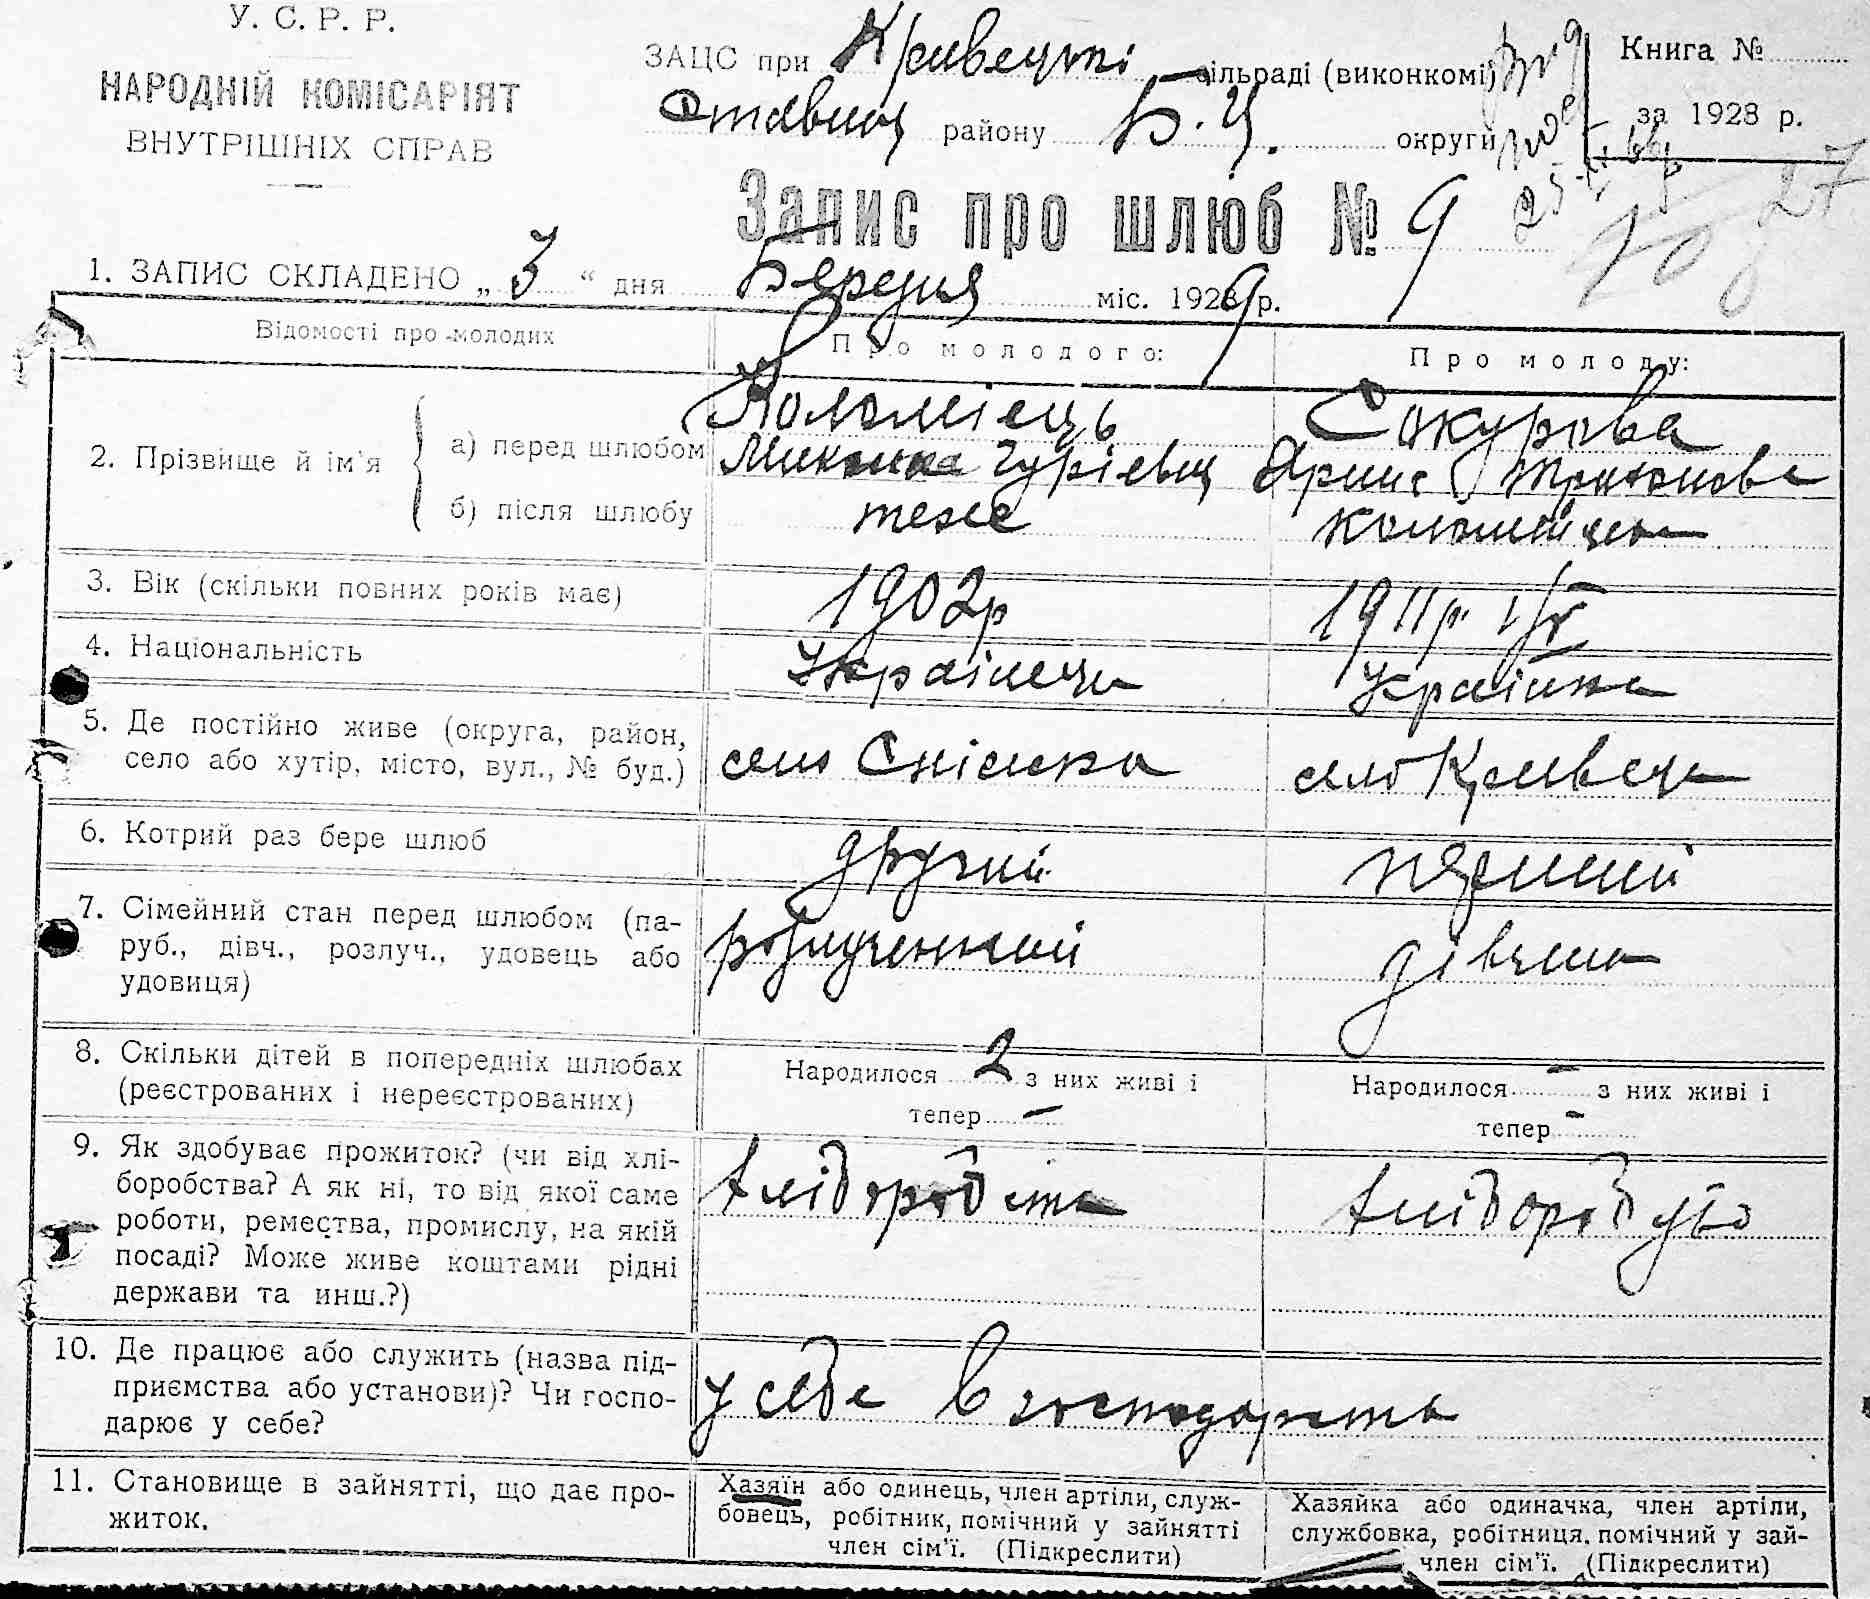 У. С. Р. Р.
НАРОДНІЙ КОМІСАРІЯТ
ВНУТРІШНІХ СПРАВ
ЗАЦС при Кривецькі сільраді (виконкомі)
Ставищ району Б. Ц. округи
Книга №
за 1928 р.
27
Запис про шлюб № 9
1. ЗАПИС СКЛАДЕНО „ 3 “ дня Березня міс. 1929 р.
Відомості про молодих
Про молодого:
Про молоду:
2. Прізвище й ім'я
а) перед шлюбом
Коломієць
Микола Гурієвич
Сокурова
Ярина
б) після шлюбу
теже
Коломієць
3. Вік (скільки повних років має)
1902р
1911р.
4. Національність
Українець
Українка
5. Де постійно живе (округа, район,
село або хутір, місто, вул., № буд.)
село Снішка
село Кривець
6. Котрий раз бере шлюб
другий
перший
7. Сімейний стан перед шлюбом (па-
руб., дівч., розлуч., удовець або
удовиця)
розлученний
дівчина
8. Скільки дітей в попередніх шлюбах
(реєстрованих і нереєстрованих)
Народилося 2 з них живі і
тепер –
Народилося – з них живі і
тепер –
9. Як здобуває прожиток? (чи від хлі-
боробства? А як ні, то від якої саме
роботи, ремества, промислу, на якій
посаді? Може живе коштами рідні
держави та инш.?)
хліборобства
хліборобство
10. Де працює або служить (назва під-
приємства або установи)? Чи госпо-
дарює у себе?
у себе в господарстві
11. Становище в зайнятті, що дає про-
житок.
Хазяїн або одинець, член артіли, служ-
бовець, робітник, помічний у зайнятті
член сім'ї. (Підкреслити)
Хазяйка або одиначка, член артіли,
службовка, робітниця, помічний у зай-
член сім'ї. (Підкреслити)